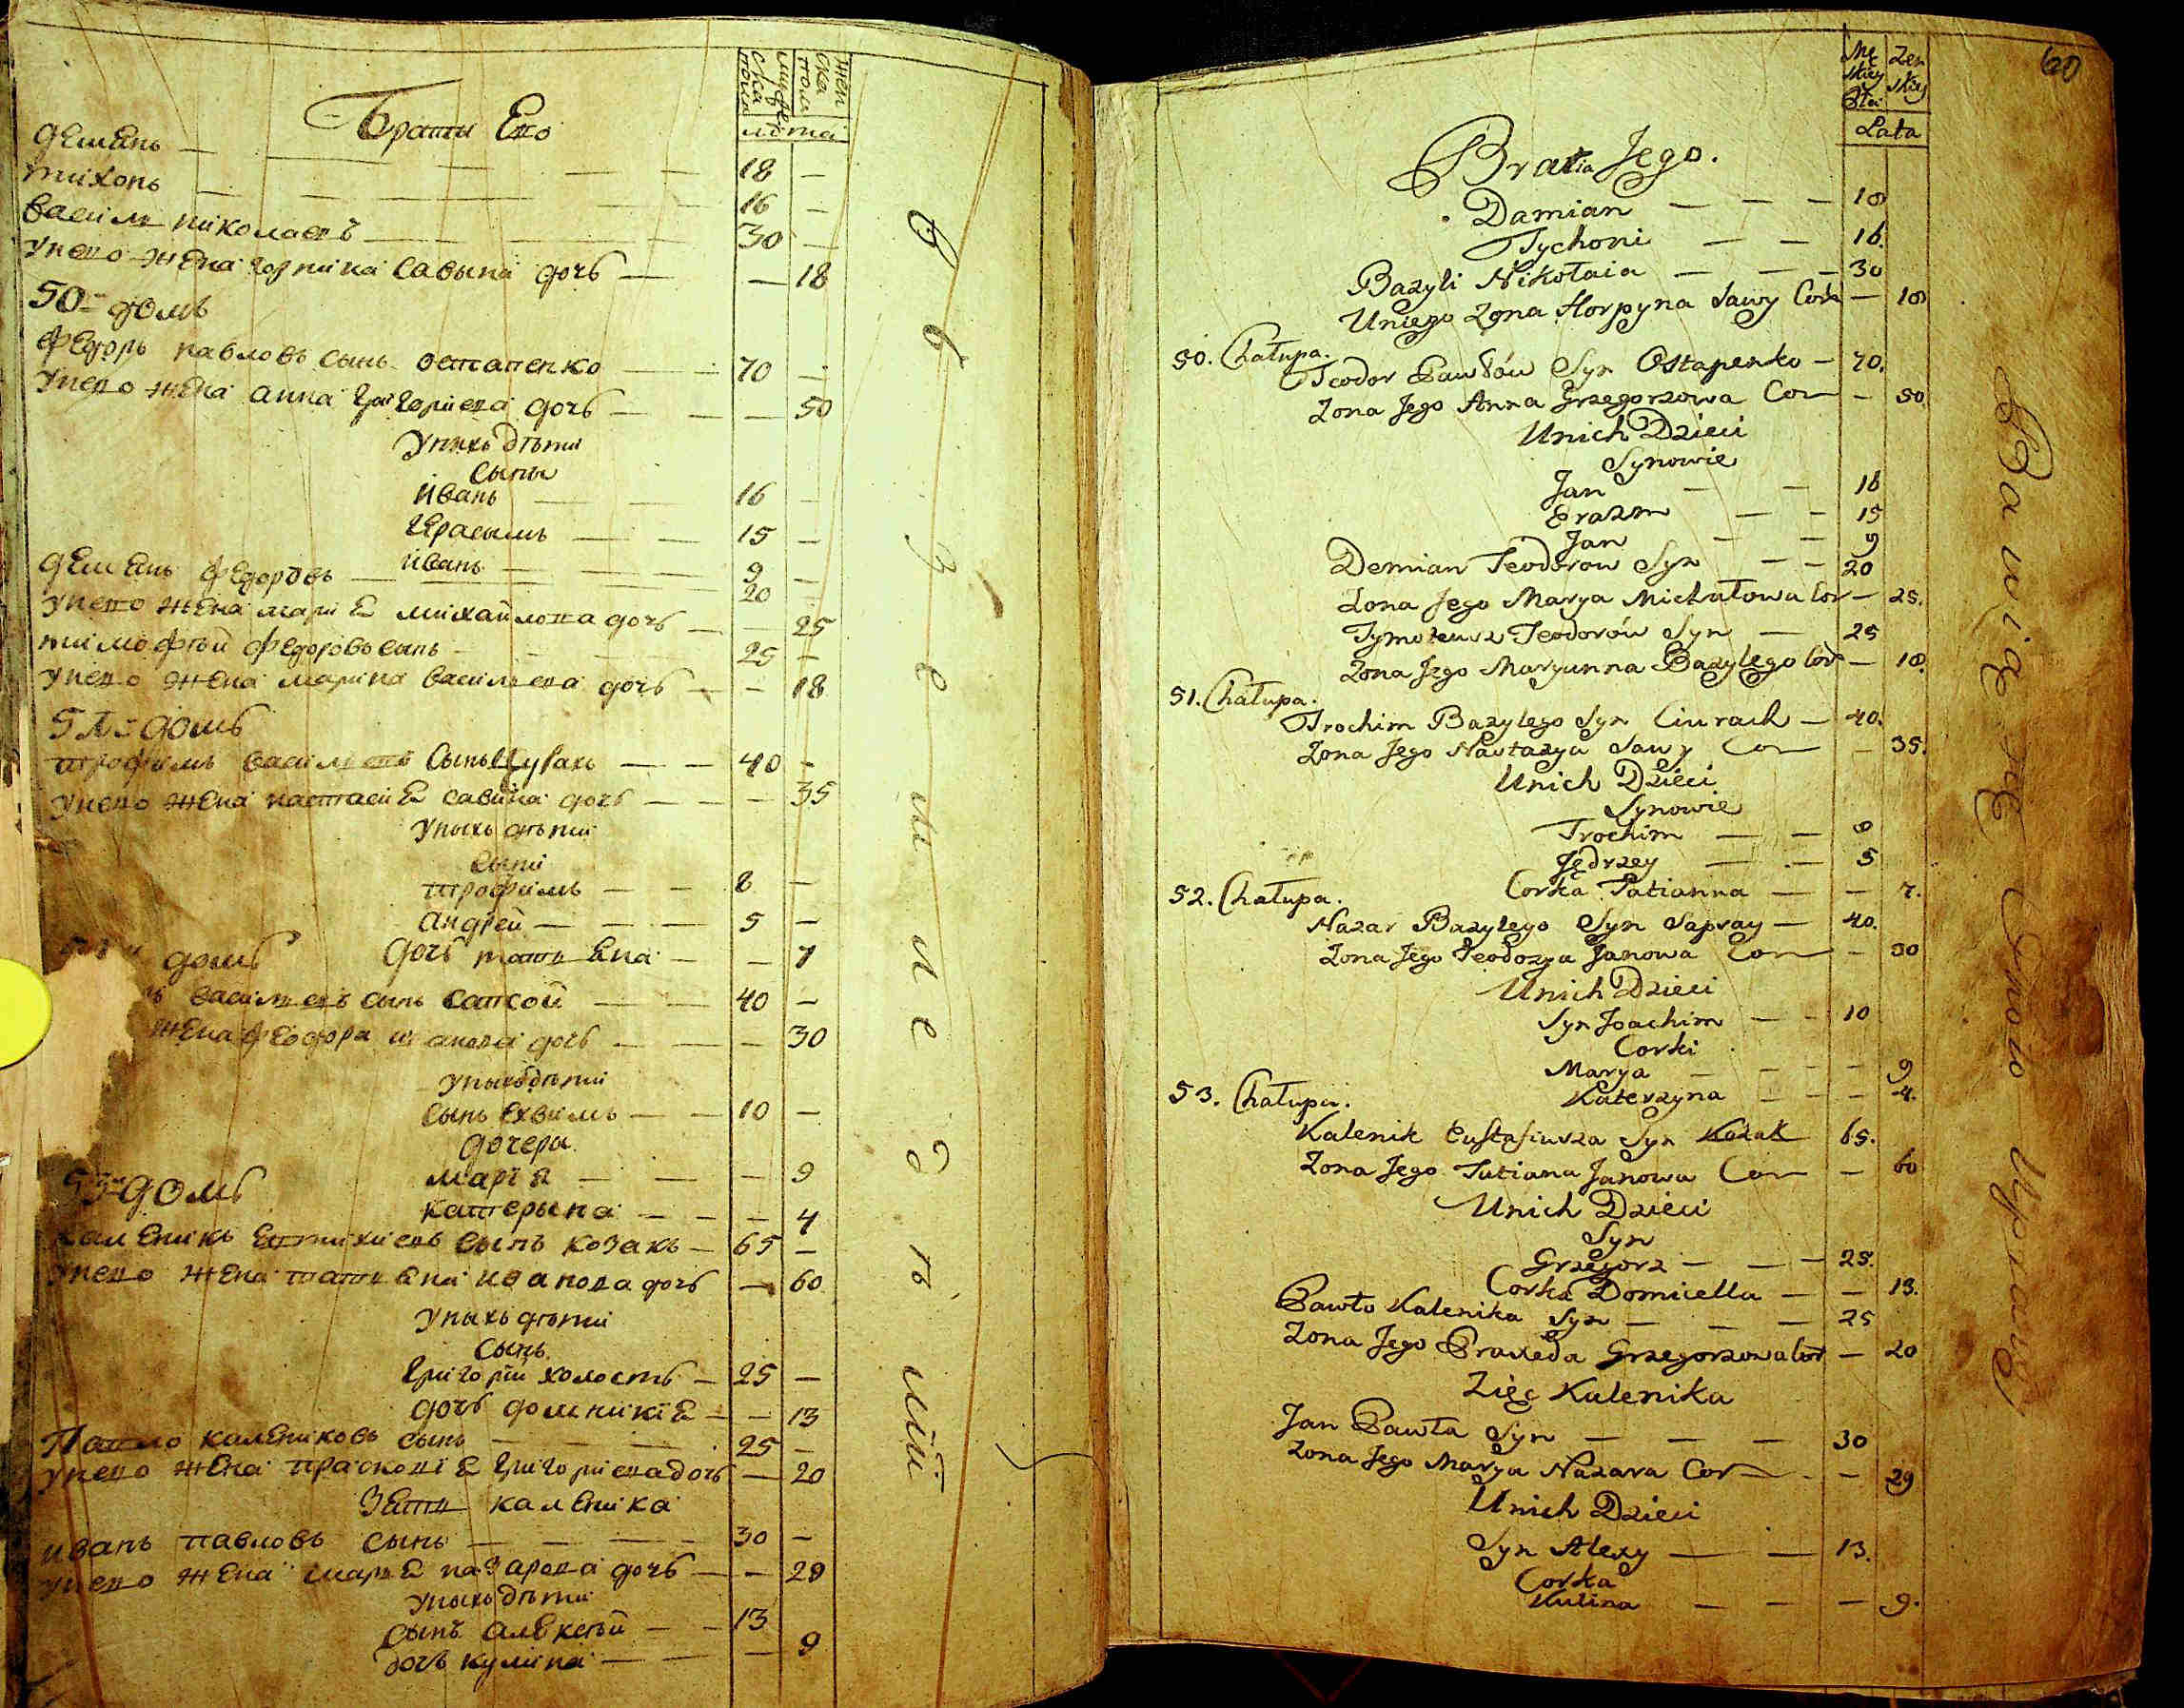 мужеска пола
женска пола
лѣта
Браты Его
Демьянъ — 18 —
Тихонъ — 16 —
Василь Николаевъ — 30 —
Унего жена Горпина Савына дочь — — 18
50-й домъ
Федоръ Павловъ сынъ Остапенко — 70 —
Унего жена Анна Григориева дочь — — 50
Унихъ дѣти
Сыны
Иванъ — 16 —
Герасымъ — 15 —
Иванъ — 9 —
Демьянъ Федоровъ — 20 —
Унего жена Мария Михайлова дочь — — 25
Тимофѣй Федоровъ сынъ — 25 —
Унего жена Марина Василиева дочь — — 18
51-й домъ
Трофимъ Василиевъ сынъ Цурахъ — 40 —
Унего жена Настасия Савина дочь — — 35
Уныхъ дѣти
Сыни
Трофимъ — 8 —
Андрей — 5 —
домъ
Дочь Татияна — — 7
Василиевъ сынъ Сапсай — 40 —
жена Феодора Иванова дочь — — 30
Уныхъ дѣти
Сынъ Ехвимъ — 10 —
Дочеры
Мария — — 9
53-й домъ
Катерына — — 4
Каленикъ Евтихиевъ сынъ Козакъ — 65 —
Унего жена Татияна Иванова дочь — — 60
Уныхъ дѣти
Сынъ
Григорий холостъ — 25 —
Дочь Домникия — — 13
Павло Калениковъ сынъ — 25 —
Унего жена Прасковия Григориева дочь — — 20
Зять Каленика
Иванъ Павловъ сынъ — 30 —
Унего жена Мария Назарова дочь — — 29
Уныхъ дѣти
Сынъ Алексѣй — 13
Дочь Кулина — — 9
60
Męskiey Płci
Zenskiey
Lata
Bratia Jego.
Damian — — — 18
Tychoni — — 16.
Bazyli Nikołaia — — — 30
Uniego Zona Horpyna Sawy Corka — 18
50. Chałupa.
Teodor Pawłów Syn Ostapenko — 70.
Zona Jego Anna Grzegorzowa Cor — 50.
Unich Dzieci
Synowie
Jan — — 16
Erazm — — 15
Jan — — 9
Demian Teodorow Syn — — 20
Zona Jego Marya Michałowa Cor — 25.
Tymoteusz Teodorów Syn — 25
Zona Jego Maryanna Bazylego Cor — 18.
51. Chałupa.
Trochim Bazylego Syn Ciurach — 40.
Zona Jego Nastazya Sawy Cor — 35.
Unich Dzieci
Synowie
Trochim — — 8
Jędrzey — — 5
Corka Tatianna — — 7.
52. Chałupa.
Nazar Bazylego Syn Sapsay — 40.
Zona Jego Teodozya Janowa Cor — 30
Unich Dzieci
Syn Joachim — — 10
Corki
Marya — — — — 9
Katerzyna — — — 4.
53. Chałupa.
Kalenik Eustafiusza Syn Kozak 65.
Zona Jego Tatiana Janowa Cor — 60
Unich Dzieci
Syn
Grzegorz — — — 25.
Corka Domicella — — 13.
Pawło Kalenika Syn — — — 25
Zona Jego Praxeda Grzegorzowa Cor — 20
Zięc Kalenika
Jan Pawła Syn — — — 30
Zona Jego Marya Nazara Cor — — 29
Unich Dzieci
Syn Alexy — — 13.
Corka
Kulina — — — 9.